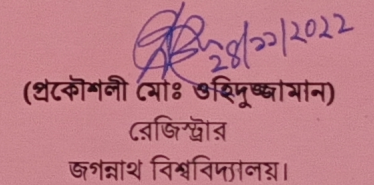 28/11/2022
(প্রকৌশলী মোঃ ওহিদুজ্জামান)
রেজিস্ট্রার
জগন্নাথ বিশ্ববিদ্যালয়।